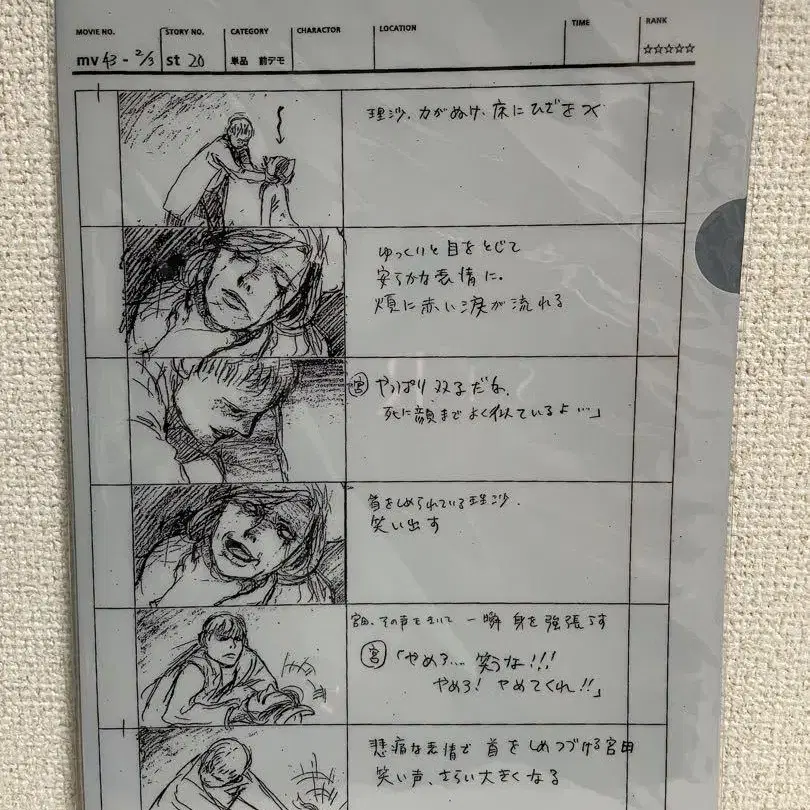 MOVIE NO.
STORY NO.
CATEGORY
CHARACTOR
LOCATION
TIME
RANK
mv 43 - 2/3
st 20
単品 前デモ
☆☆☆☆☆
理沙、力がぬけ、床にひざをつく
ゆっくりと目をとじて
安らかな表情に。
頬に赤い涙が流れる
宮 やっぱり双子だな、
死に顔までよく似ているよ…」
首をしめられている理沙、
笑い出す
宮田、その声をきいて一瞬身を強張らす
宮「やめろ… 笑うな!!!
やめろ! やめてくれ!!」
悲痛な表情で首をしめつづける宮田
笑い声、さらに大きくなる